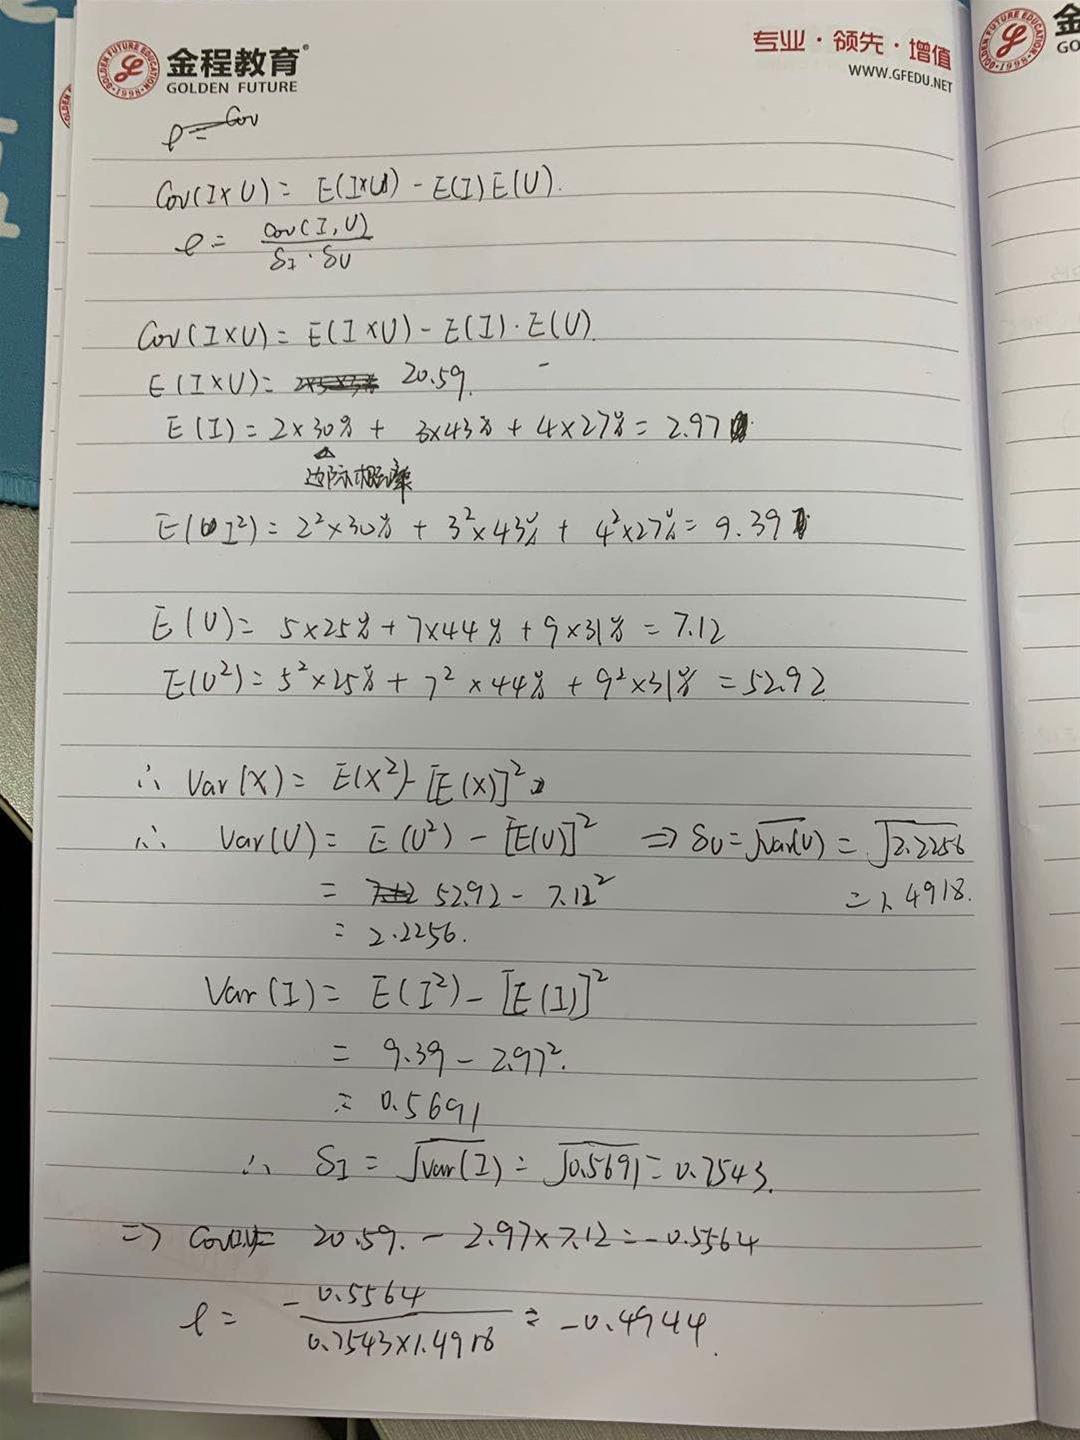 金程教育
GOLDEN FUTURE
专业·领先·增值
WWW.GFEDU.NET
ρ = Cov
Cov(I×U) = E(I×U) - E(I)E(U).
ρ = Cov(I,U) / δI · δU
Cov(I×U) = E(I×U) - E(I)·E(U).
E(I×U) = 20.59.
E(I) = 2×30% + 3×43% + 4×27% = 2.97
边际概率
E(I²) = 2²×30% + 3²×43% + 4²×27% = 9.39
E(U) = 5×25% + 7×44% + 9×31% = 7.12
E(U²) = 5²×25% + 7²×44% + 9²×31% = 52.92
∴ Var(X) = E(X²) - [E(X)]²
∴ Var(U) = E(U²) - [E(U)]² ⇒ δU = √Var(U) = √2.2256
= 52.92 - 7.12² = 1.4918.
= 2.2256.
Var(I) = E(I²) - [E(I)]²
= 9.39 - 2.97².
= 0.5691
∴ δI = √Var(I) = √0.5691 = 0.7543.
⇒ Cov(I,U) = 20.59. - 2.97×7.12 = -0.5564
ρ = -0.5564 / 0.7543×1.4918 = -0.4944.